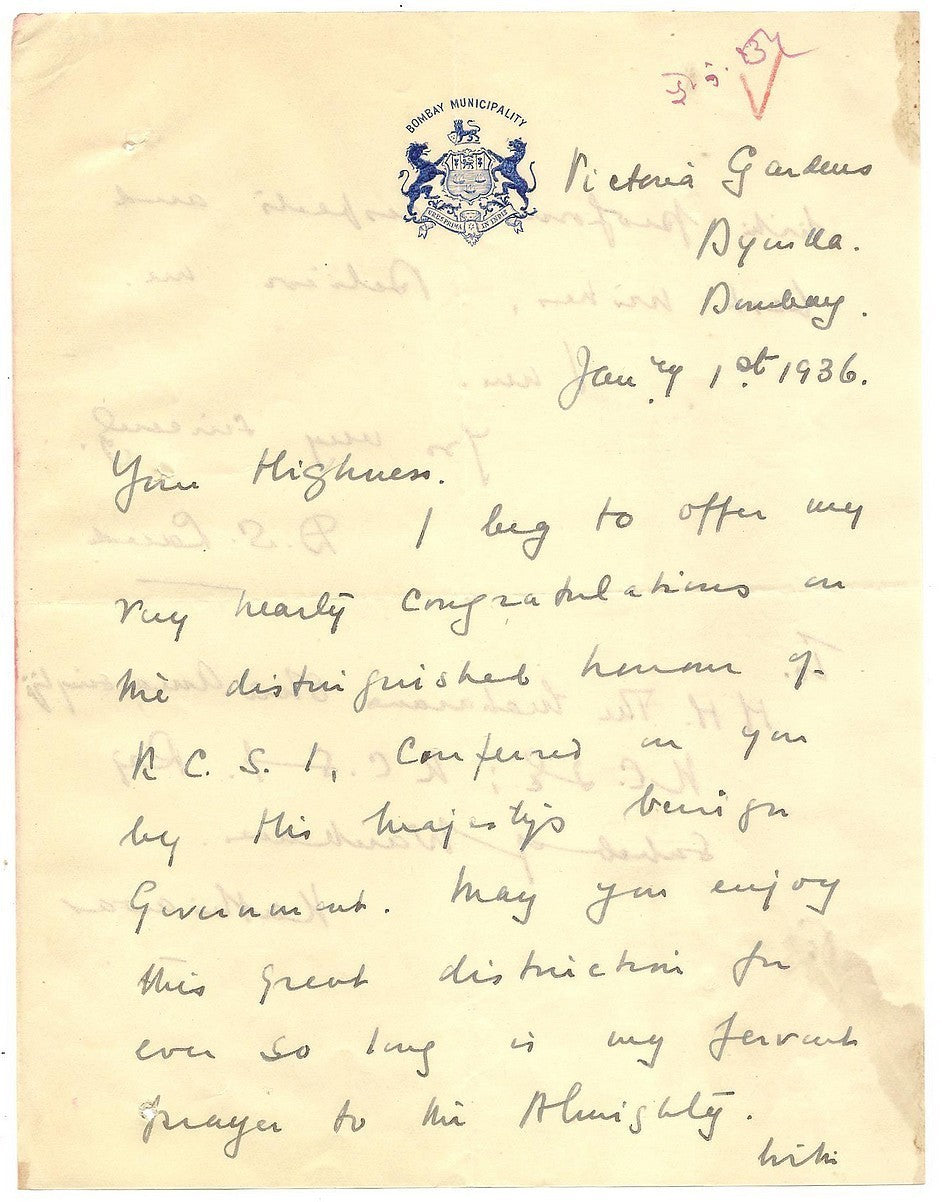 BOMBAY MUNICIPALITY
URBS PRIMA IN INDIS
Victoria Gardens
Byculla.
Bombay.
Jan'ry 1st 1936.
Your Highness.
I beg to offer my
very hearty congratulations on
the distinguished honour of
K. C. S. I, conferred on you
by His Majesty's benign
Government. May you enjoy
this great distinction for
ever so long is my fervent
prayer to the Almighty.
With